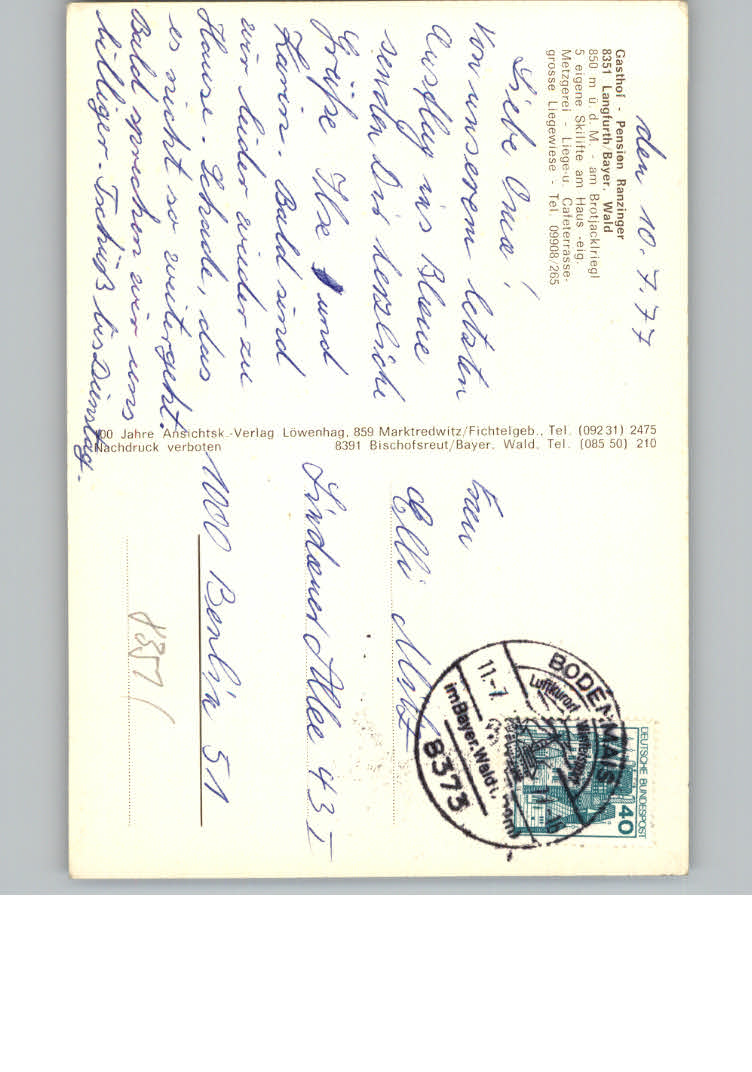 Gasthof - Pension Ranzinger
8351 Langfurth/Bayer. Wald
850 m ü. d. M. - am Brotjacklriegl
5 eigene Skilifte am Haus -eig.
Metzgerei - Liege-u. Cafeterrasse-
grosse Liegewiese - Tel. 09908/265
den 10.7.77
Liebe Oma!
Von unserem letzten
Ausflug ins Blaue
senden Dir herzliche
Grüße Ilse und
Karin. Bald sind
wir leider wieder zu
Hause. Schade, das
es nicht so weitergeht.
Bald sprechen wir uns
billiger. Tschüß bis Dienstag.
00 Jahre Ansichtsk.-Verlag Löwenhag, 859 Marktredwitz/Fichtelgeb., Tel. (092 31) 2475
Nachdruck verboten 8391 Bischofsreut/Bayer. Wald, Tel. (085 50) 210
Frau
Elli
Lindauer Allee 43 I
1000 Berlin 51
8351
DEUTSCHE BUNDESPOST
40
BODENMAIS
Luftkurort
11.-7.
im Bayer. Wald
8373